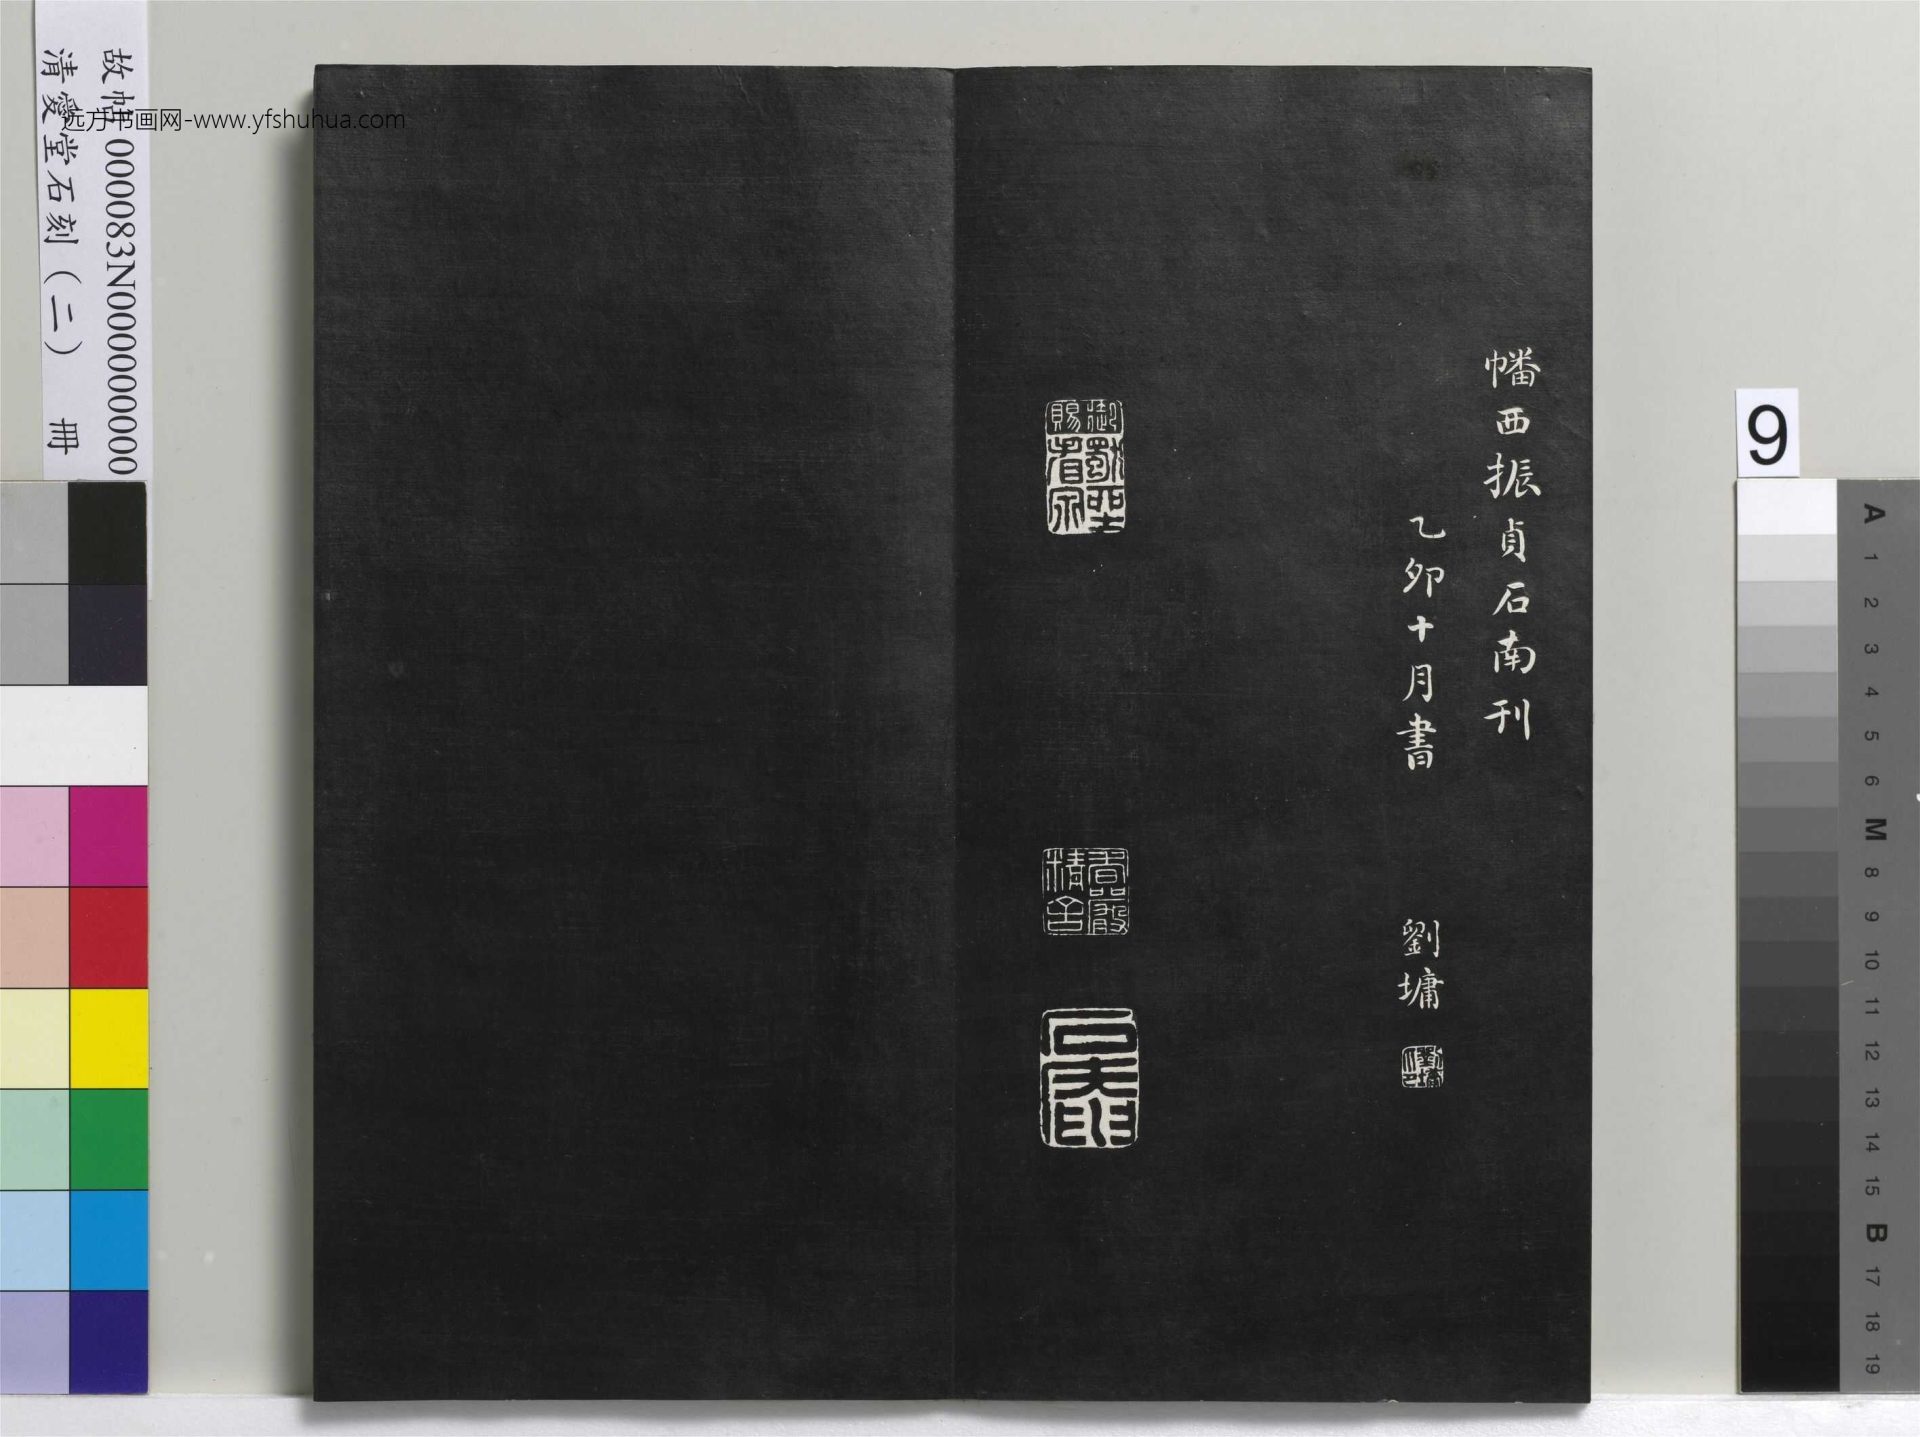 故帖000083N000000000
清愛堂石刻（二） 冊
远方书画网-www.yfshuhua.com
幡西振貞石南刊
乙卯十月書 劉墉
香嚴精舍
石庵
9
A
1
2
3
4
5
6
M
8
9
10
11
12
13
14
15
B
17
18
19